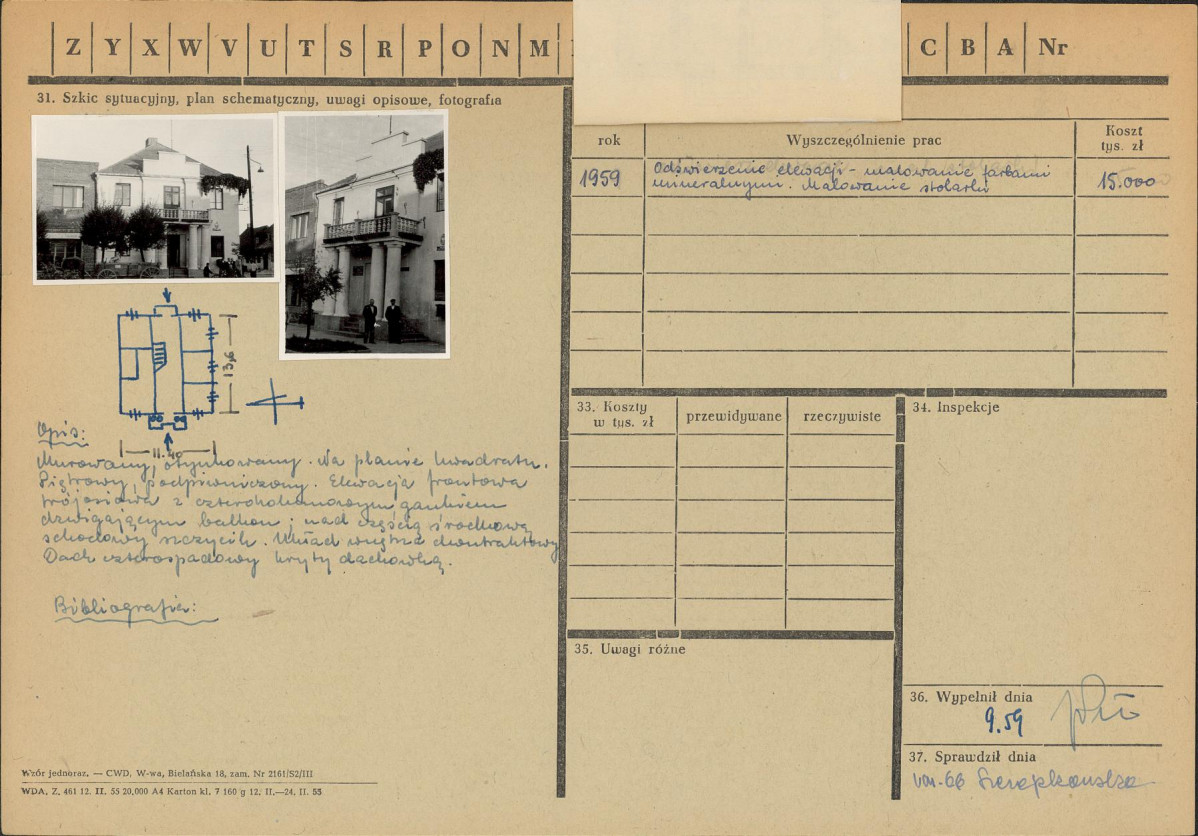 Z Y X W V U T S R P O N M C B A Nr
31. Szkic sytuacyjny, plan schematyczny, uwagi opisowe, fotografia
13,6
11.40
Opis:
Murowany, otynkowany. Na planie kwadratu.
Piętrowy, podpiwniczony. Elewacja frontowa
trójosiowa z czterokolumnowym gankiem
dźwigającym balkon; nad częścią środkową
schodowy szczycik. Układ wnętrza dwutraktowy
Dach czterospadowy kryty dachówką.
Bibliografia:
Wzór jednoraz. — CWD, W-wa, Bielańska 18, zam. Nr 2161/S2/III
WDA. Z. 461 12. II. 55 20,000 A4 Karton kl. 7 160 g 12. II.—24. II. 55
rok Wyszczególnienie prac Koszt
tys. zł
1959 Odświeżenie elewacji - malowanie farbami 15.000
mineralnymi. Malowanie stolarki
33. Koszty w tys. zł przewidywane rzeczywiste
34. Inspekcje
35. Uwagi różne
36. Wypełnił dnia
9.59
37. Sprawdził dnia